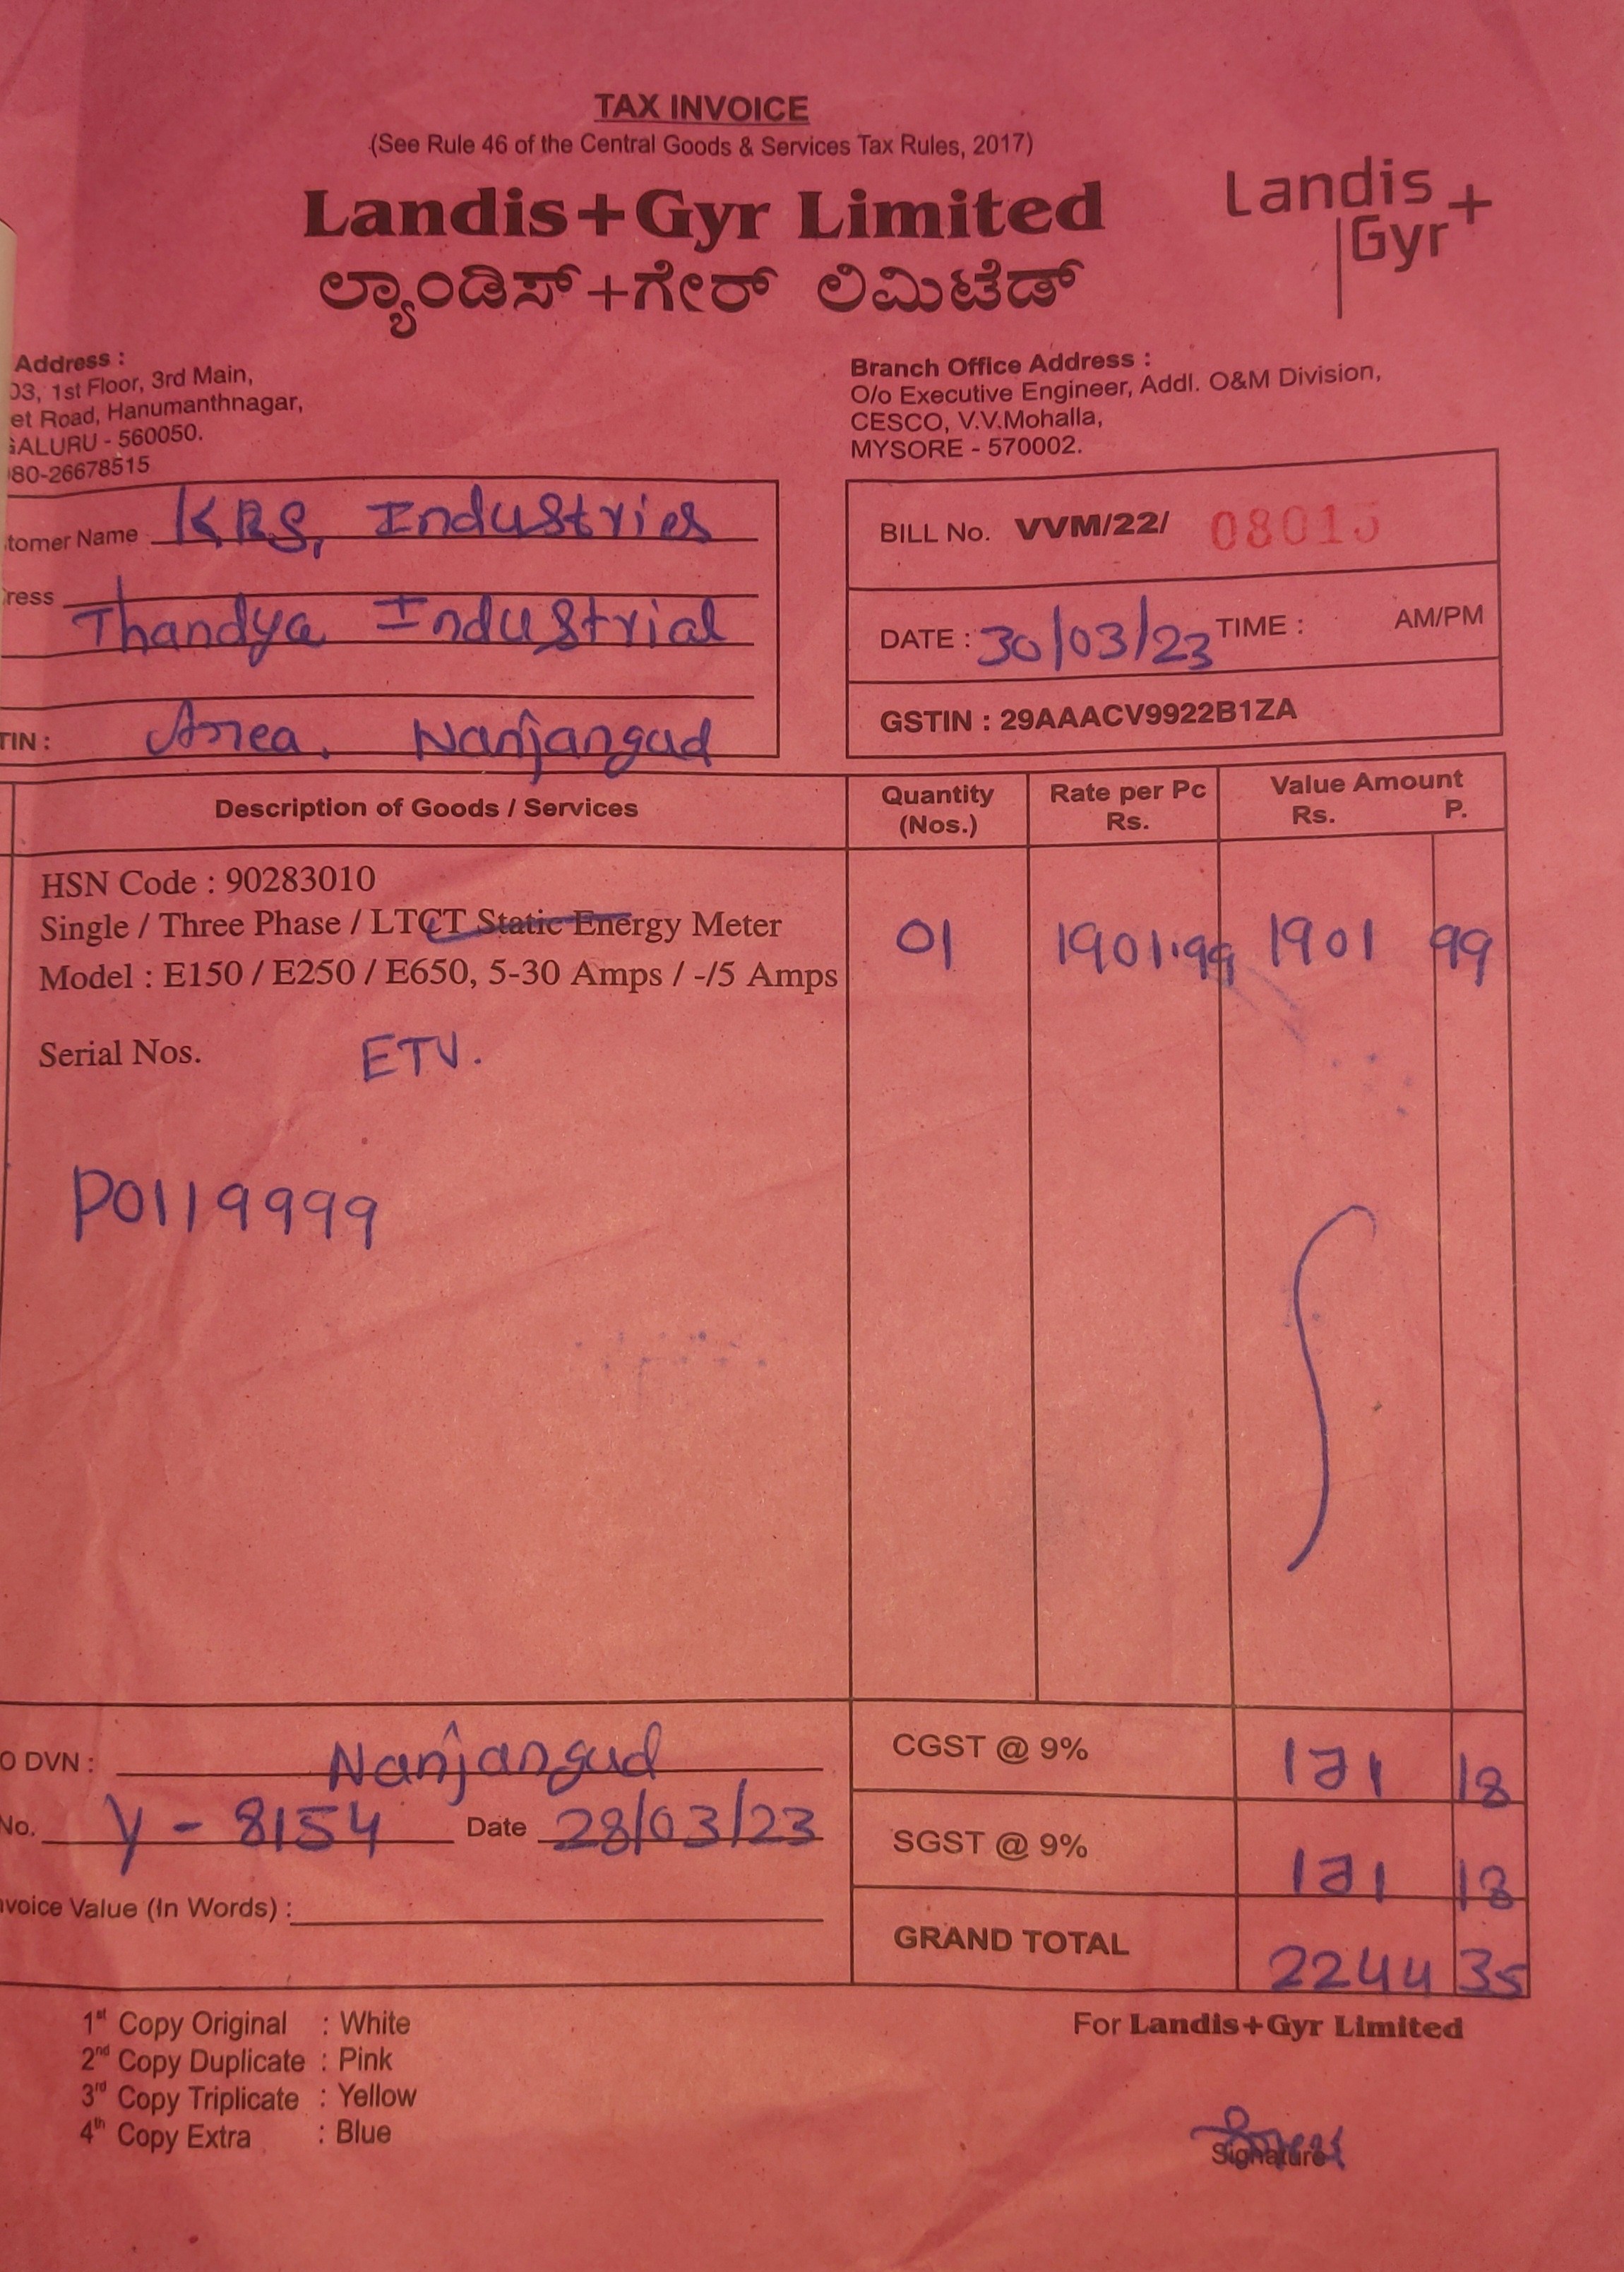 TAX INVOICE
(See Rule 46 of the Central Goods & Services Tax Rules, 2017)
Landis+Gyr Limited
Landis+
Gyr
ಲ್ಯಾಂಡಿಸ್+ಗೇರ್ ಲಿಮಿಟೆಡ್
Address :
03, 1st Floor, 3rd Main,
et Road, Hanumanthnagar,
GALURU - 560050.
080-26678515
Branch Office Address :
O/o Executive Engineer, Addl. O&M Division,
CESCO, V.V.Mohalla,
MYSORE - 570002.
tomer Name KRS, Industries
ress Thandya Industrial
TIN : Area, Nanjangud
BILL No. VVM/22/ 08015
DATE : 30/03/23 TIME : AM/PM
GSTIN : 29AAACV9922B1ZA
Description of Goods / Services Quantity (Nos.) Rate per Pc Rs. Value Amount Rs. P.
HSN Code : 90283010
Single / Three Phase / LTCT Static Energy Meter 01 1901.99 1901 99
Model : E150 / E250 / E650, 5-30 Amps / -/5 Amps
Serial Nos. ETV.
P0119999
O DVN : Nanjangud
No. Y - 8154 Date 28/03/23
nvoice Value (In Words) :
CGST @ 9% 171 18
SGST @ 9% 171 18
GRAND TOTAL 2244 35
1st Copy Original : White
2nd Copy Duplicate : Pink
3rd Copy Triplicate : Yellow
4th Copy Extra : Blue
For Landis+Gyr Limited
Signature